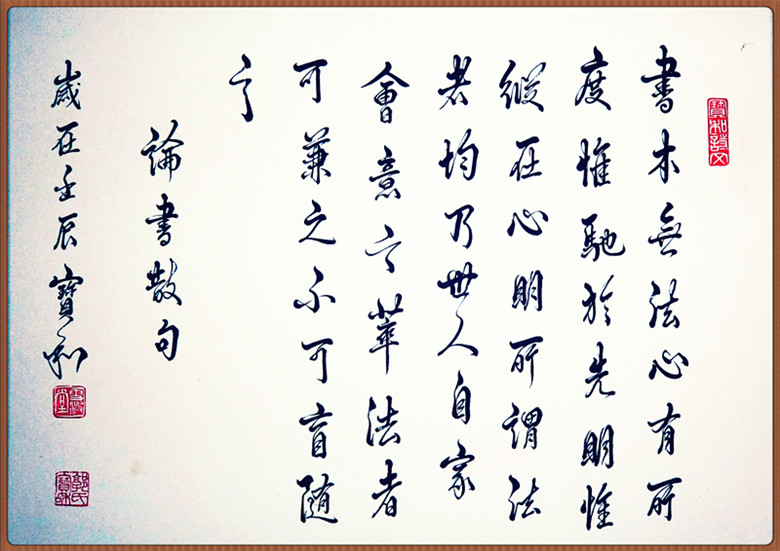 書本無法心有所
度惟馳於先明惟
縱在心明所謂法
者均乃世人自家
會意言華法者
可兼之不可盲隨
言
論書散句
歲在壬辰寶和
郭氏寶和